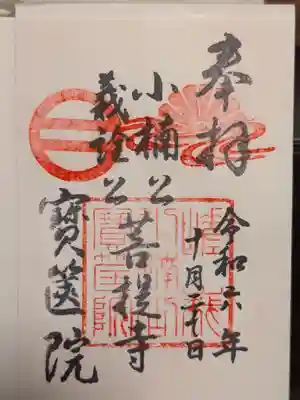 奉拝
令和六年
十月二十日
小楠公
義詮公
菩提寺
寳篋院